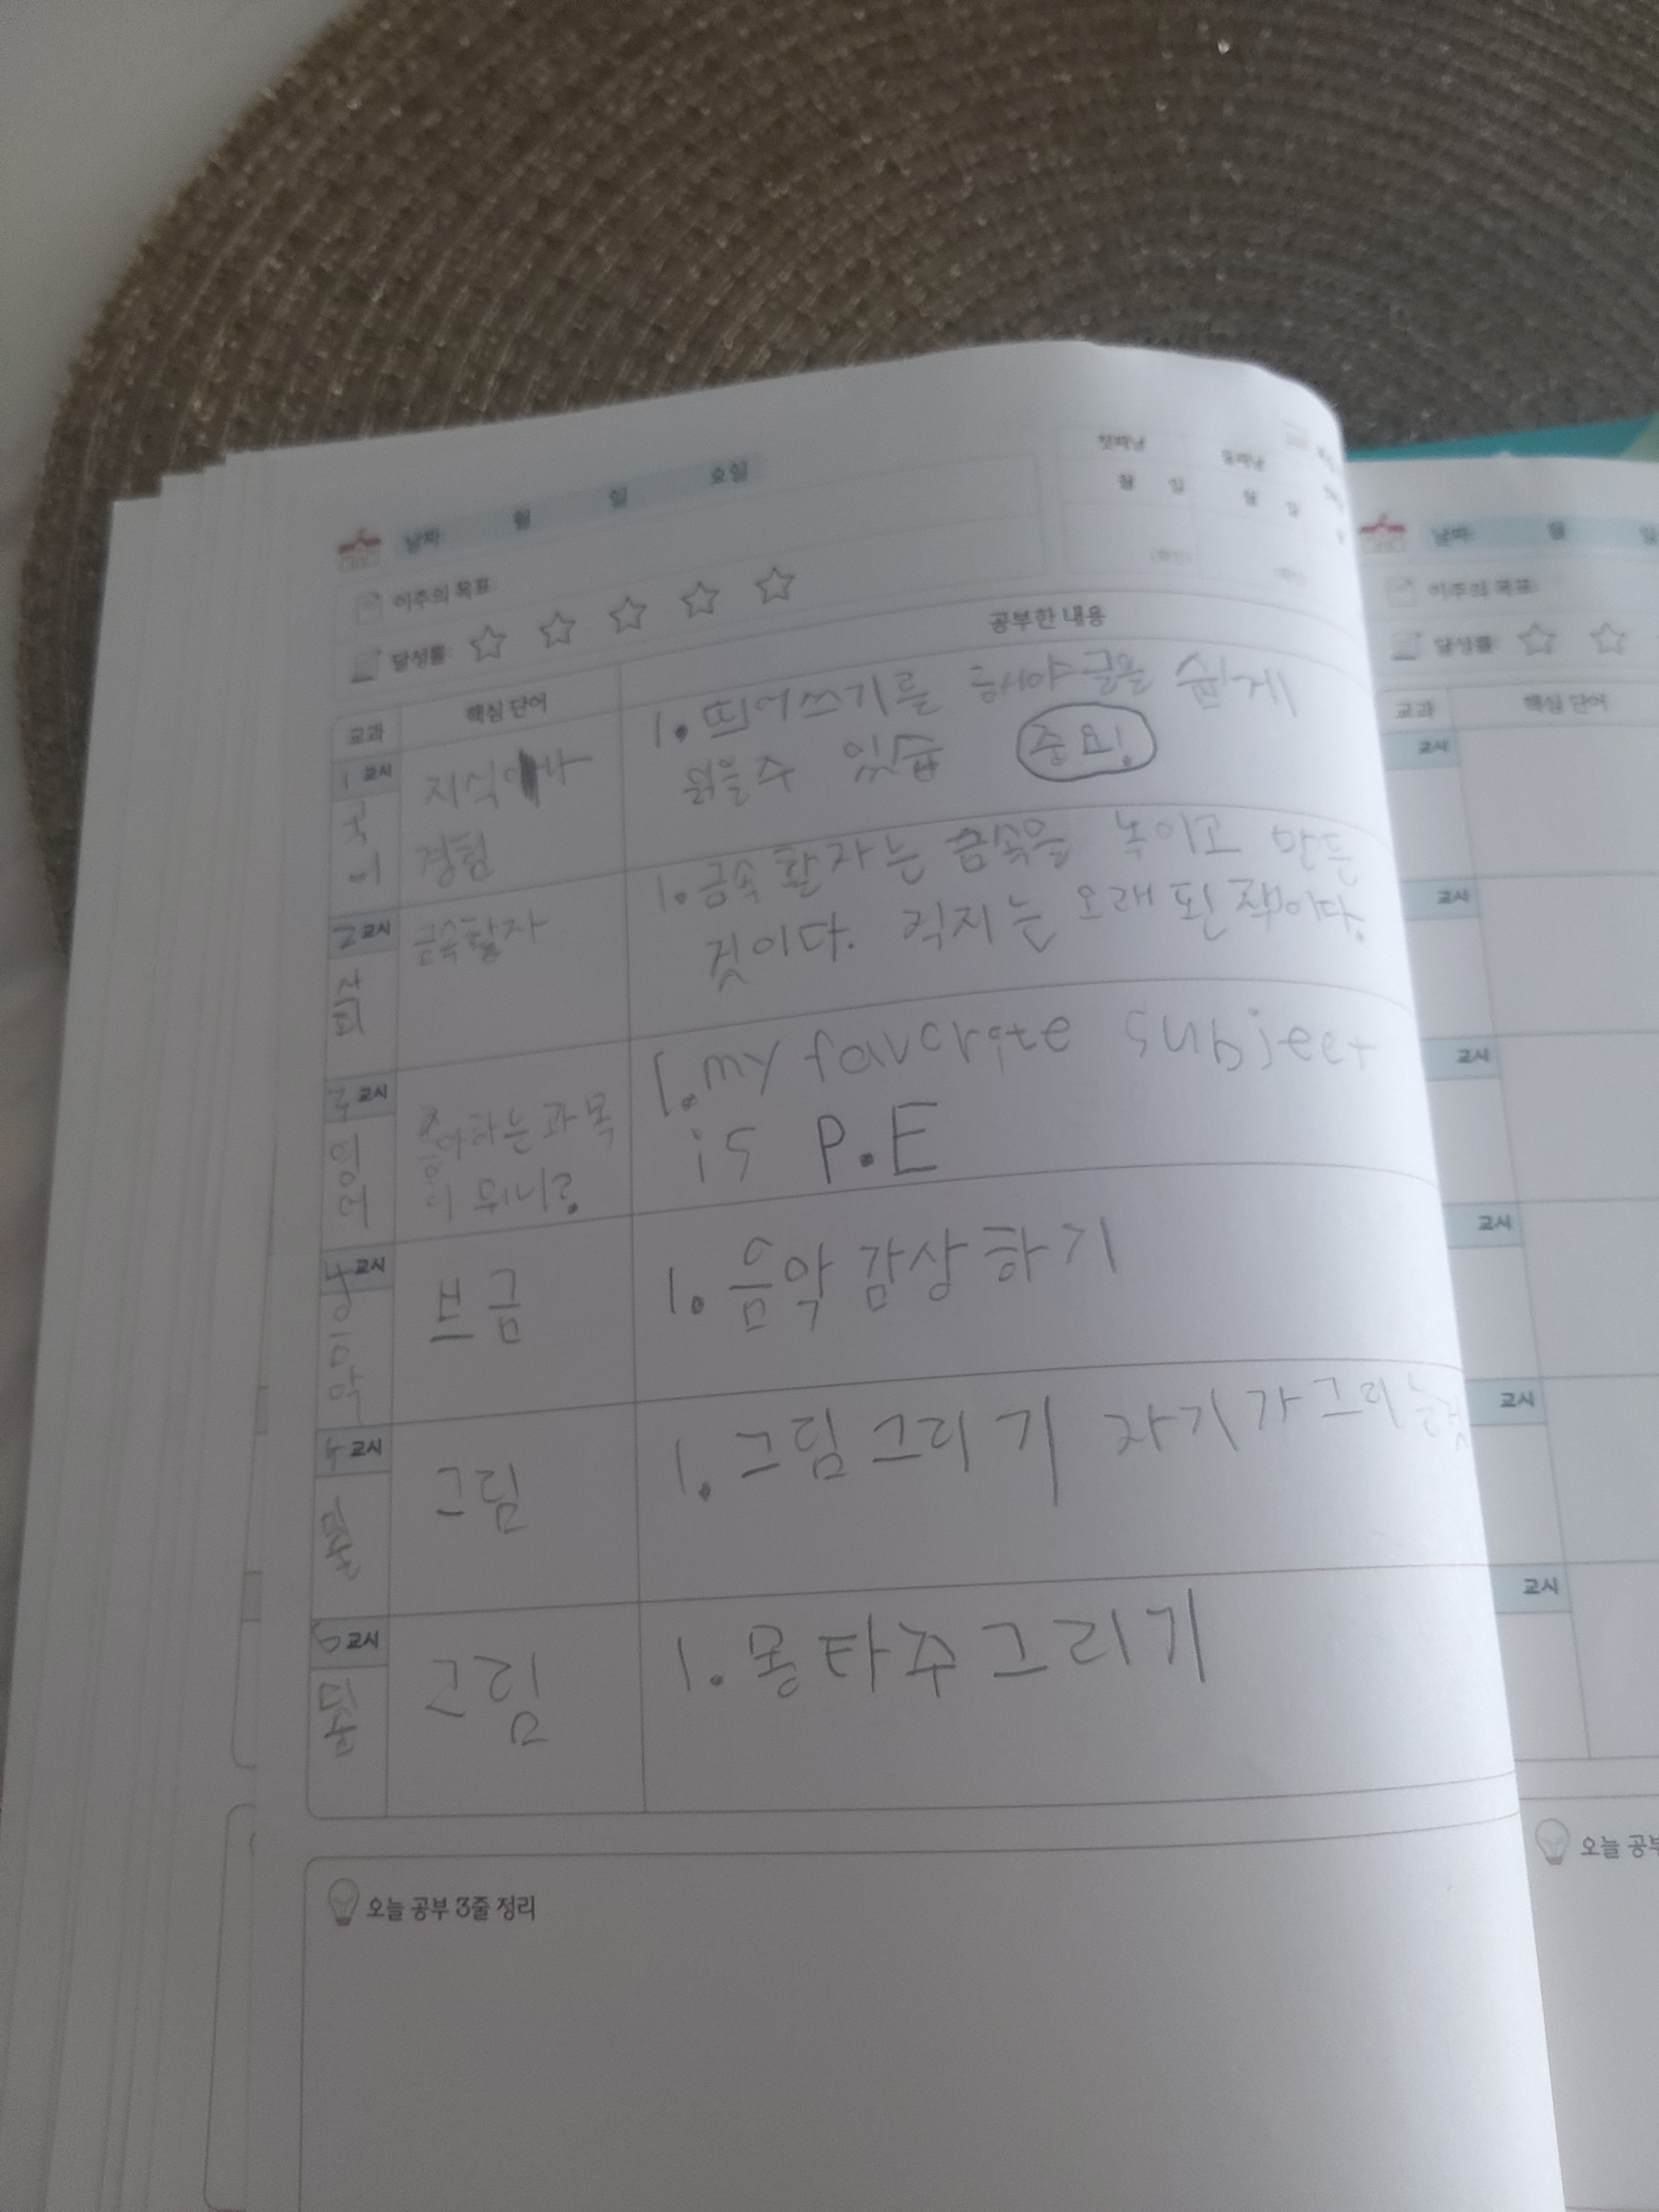 날짜: 월 일 요일
첫째날 둘째날
월 일 월 일
(확인) (확인)
이주의 목표:
달성률: ☆ ☆ ☆ ☆ ☆
교과 핵심 단어 공부한 내용
1 교시
국어
지식이나
경험
1. 띄어쓰기를 해야 글을 쉽게
읽을수 있습 중요!
2 교시
금속활자
1. 금속 활자는 금속을 녹이고 만든
것이다. 직지는 오래된 책이다.
3 교시
영어
좋아하는 과목
이 뭐니?
1. my favorite subject
is P.E
4 교시
음악
브금
1. 음악 감상하기
교시
그림
1. 그림 그리기 자기가 그리는것
6 교시
그림
1. 몽타주 그리기
오늘 공부 3줄 정리
날짜: 월 일
이주의 목표:
달성률: ☆ ☆
교과 핵심 단어
교시
교시
교시
교시
교시
교시
오늘 공부